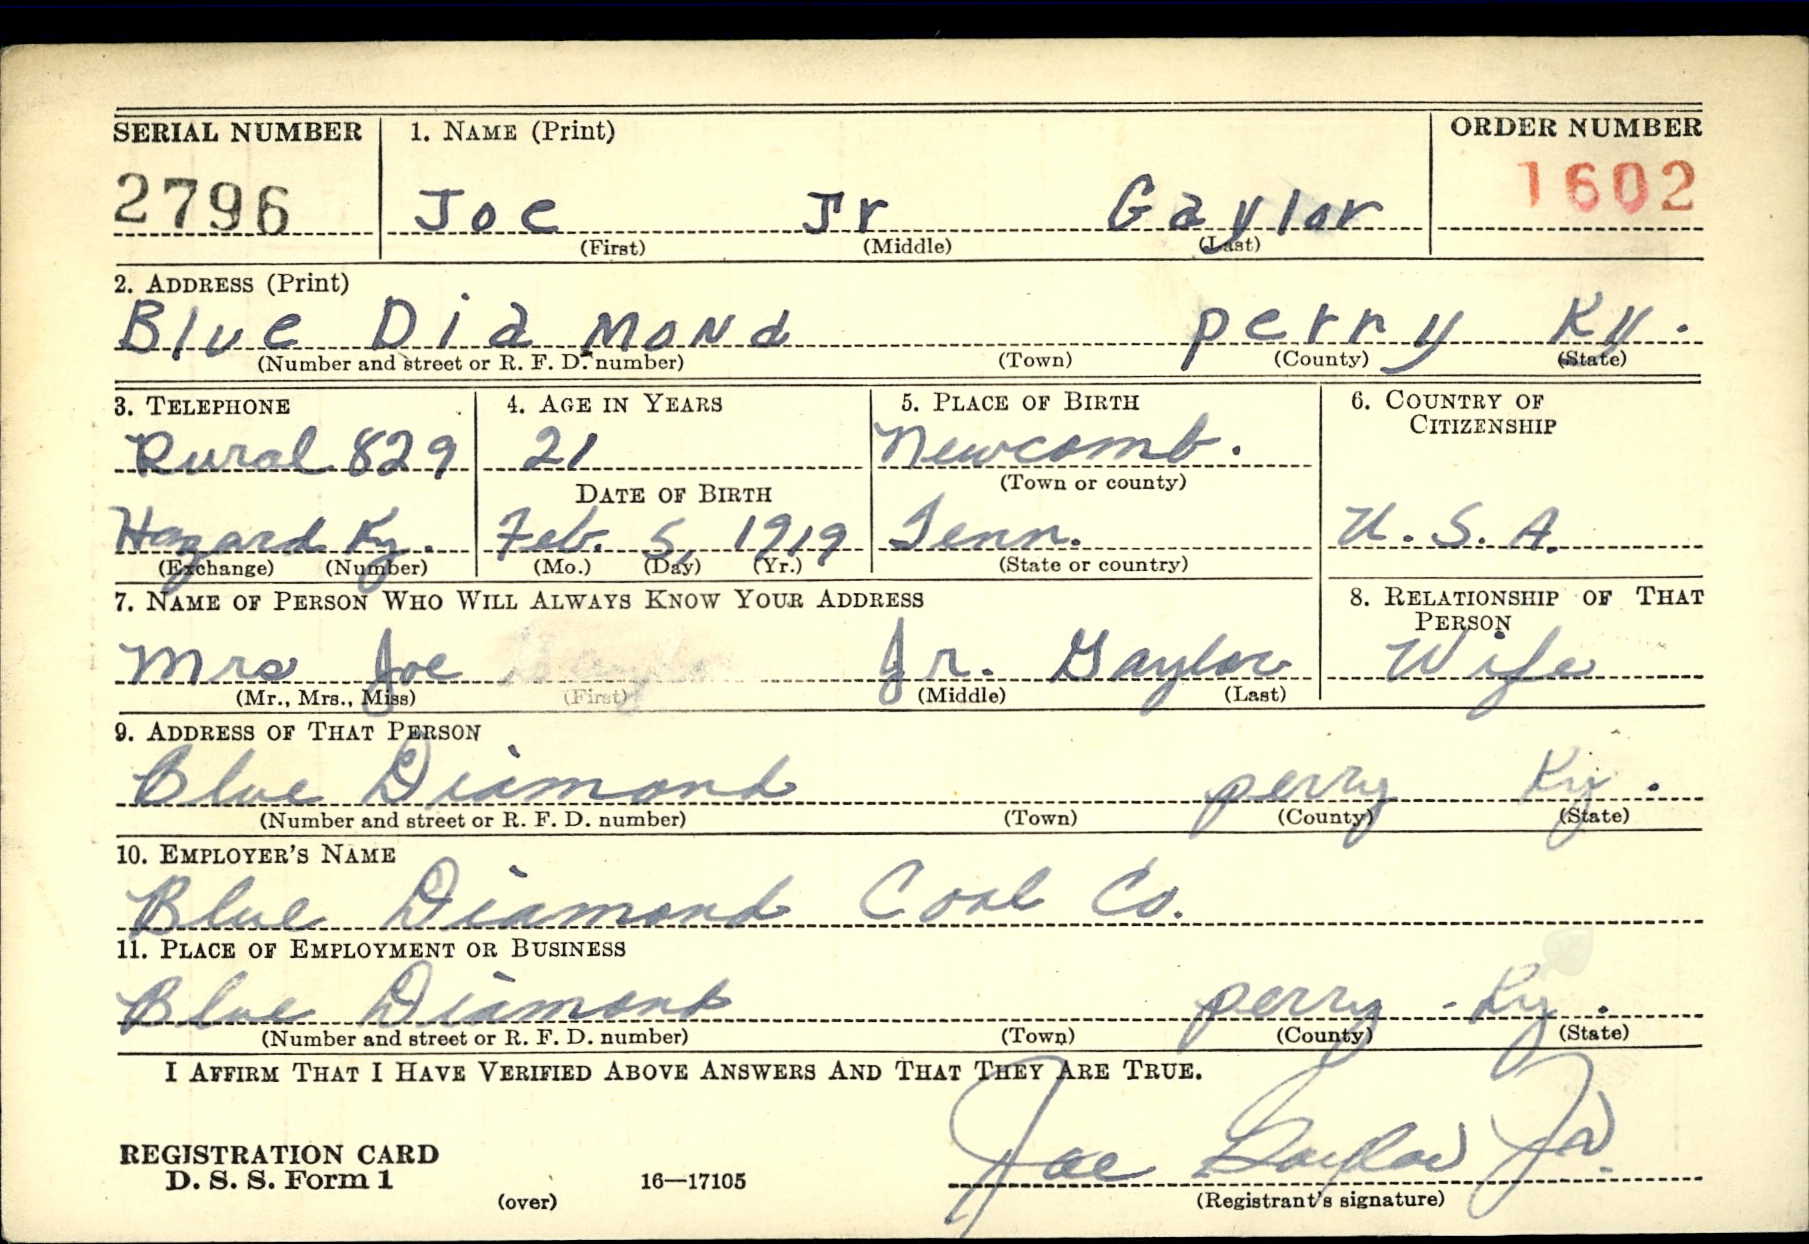 SERIAL NUMBER 1. NAME (Print) ORDER NUMBER
2796 Joe Jr Gaylor 1602
(First) (Middle) (Last)
2. ADDRESS (Print)
Blue Diamond perry Ky.
(Number and street or R. F. D. number) (Town) (County) (State)
3. TELEPHONE 4. AGE IN YEARS 5. PLACE OF BIRTH 6. COUNTRY OF CITIZENSHIP
Rural 829 21 Newcomb.
DATE OF BIRTH (Town or county)
Hazard Ky. Feb. 5, 1919 Tenn. U. S. A.
(Exchange) (Number) (Mo.) (Day) (Yr.) (State or country)
7. NAME OF PERSON WHO WILL ALWAYS KNOW YOUR ADDRESS 8. RELATIONSHIP OF THAT PERSON
Mrs Joe Jr. Gaylor Wife
(Mr., Mrs., Miss) (First) (Middle) (Last)
9. ADDRESS OF THAT PERSON
Blue Diamond perry Ky.
(Number and street or R. F. D. number) (Town) (County) (State)
10. EMPLOYER'S NAME
Blue Diamond Coal Co.
11. PLACE OF EMPLOYMENT OR BUSINESS
Blue Diamond perry - Ky.
(Number and street or R. F. D. number) (Town) (County) (State)
I AFFIRM THAT I HAVE VERIFIED ABOVE ANSWERS AND THAT THEY ARE TRUE.
REGISTRATION CARD
Joe Gaylor Jr.
D. S. S. Form 1 (over) 16—17105 (Registrant's signature)